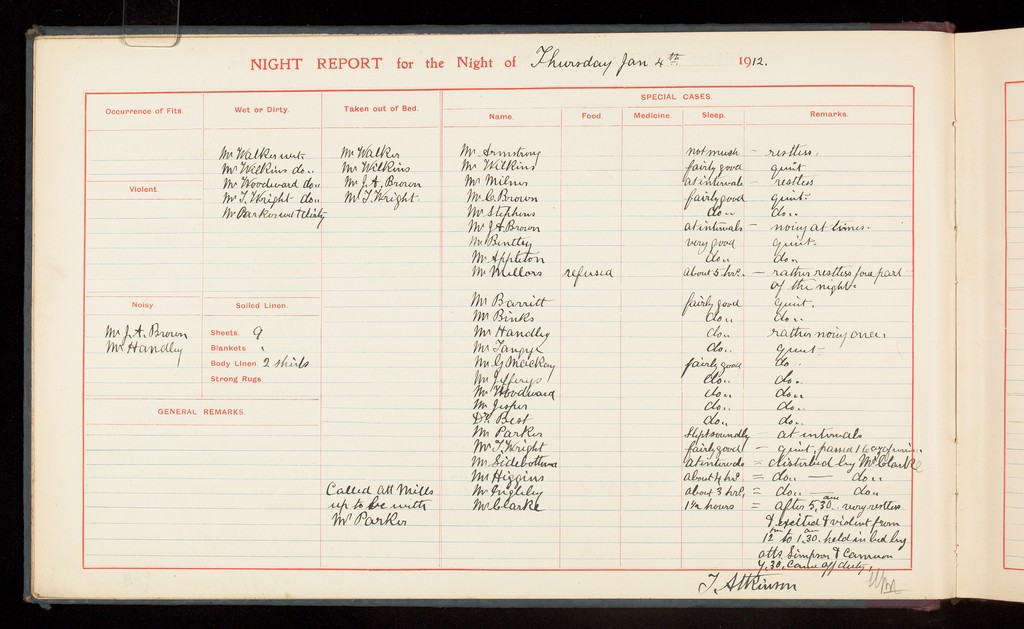 NIGHT REPORT for the Night of Thursday Jan 4th 1912.
Occurrence of Fits.
Wet or Dirty.
Taken out of Bed.
SPECIAL CASES.
Name. Food. Medicine. Sleep. Remarks.
Mr Walker wet.
Mr Wilkins do..
Mr Woodward do..
Mr T. Wright do..
Mr Parker wet & dirty
Mr Walker
Mr Wilkins
Mr J. A. Brown
Mr T. Wright
Violent.
Noisy
Mr J. A. Brown
Mr Handley
Soiled Linen.
Sheets. 9
Blankets
Body Linen. 2 shirts
Strong Rugs
GENERAL REMARKS.
Called Att Mills
up to be with
Mr Parker
Mr Armstrong not much - restless.
Mr Wilkins fairly good quiet
Mr Milner at intervals - restless
Mr C. Brown fairly good quiet.
Mr Stephens do.. do..
Mr J A Brown at intervals - noisy at times.
Mr Bentley very good quiet.
Mr Appleton do.. do..
Mr Mellors refused about 5 hrs. - rather restless fore part
of the night.
Mr Barritt fairly good quiet.
Mr Binks do.. do..
Mr Handley do.. rather noisy once
Mr do.. quiet
Mr G Mackay fairly good do..
Mr Jefferys do.. do..
Mr Woodward do.. do..
Mr Jesper do.. do..
Dr Best do.. do..
Mr Parker slept soundly - at intervals
Mr T. Wright fairly good - quiet, passed 16 ozs of urine.
Mr Sidebottom at intervals = disturbed by Mr Clarke
Mr Higgins about 4 hrs = do.. — do..
Mr about 3 hrs = do.. — do..
Mr Clarke 1½ hours = after 5.30 am very restless
& excited & violent from
12 to 1.30 am held in bed by
atts Simpson & Cameron
7.30. came off duty.
T. Atkinson